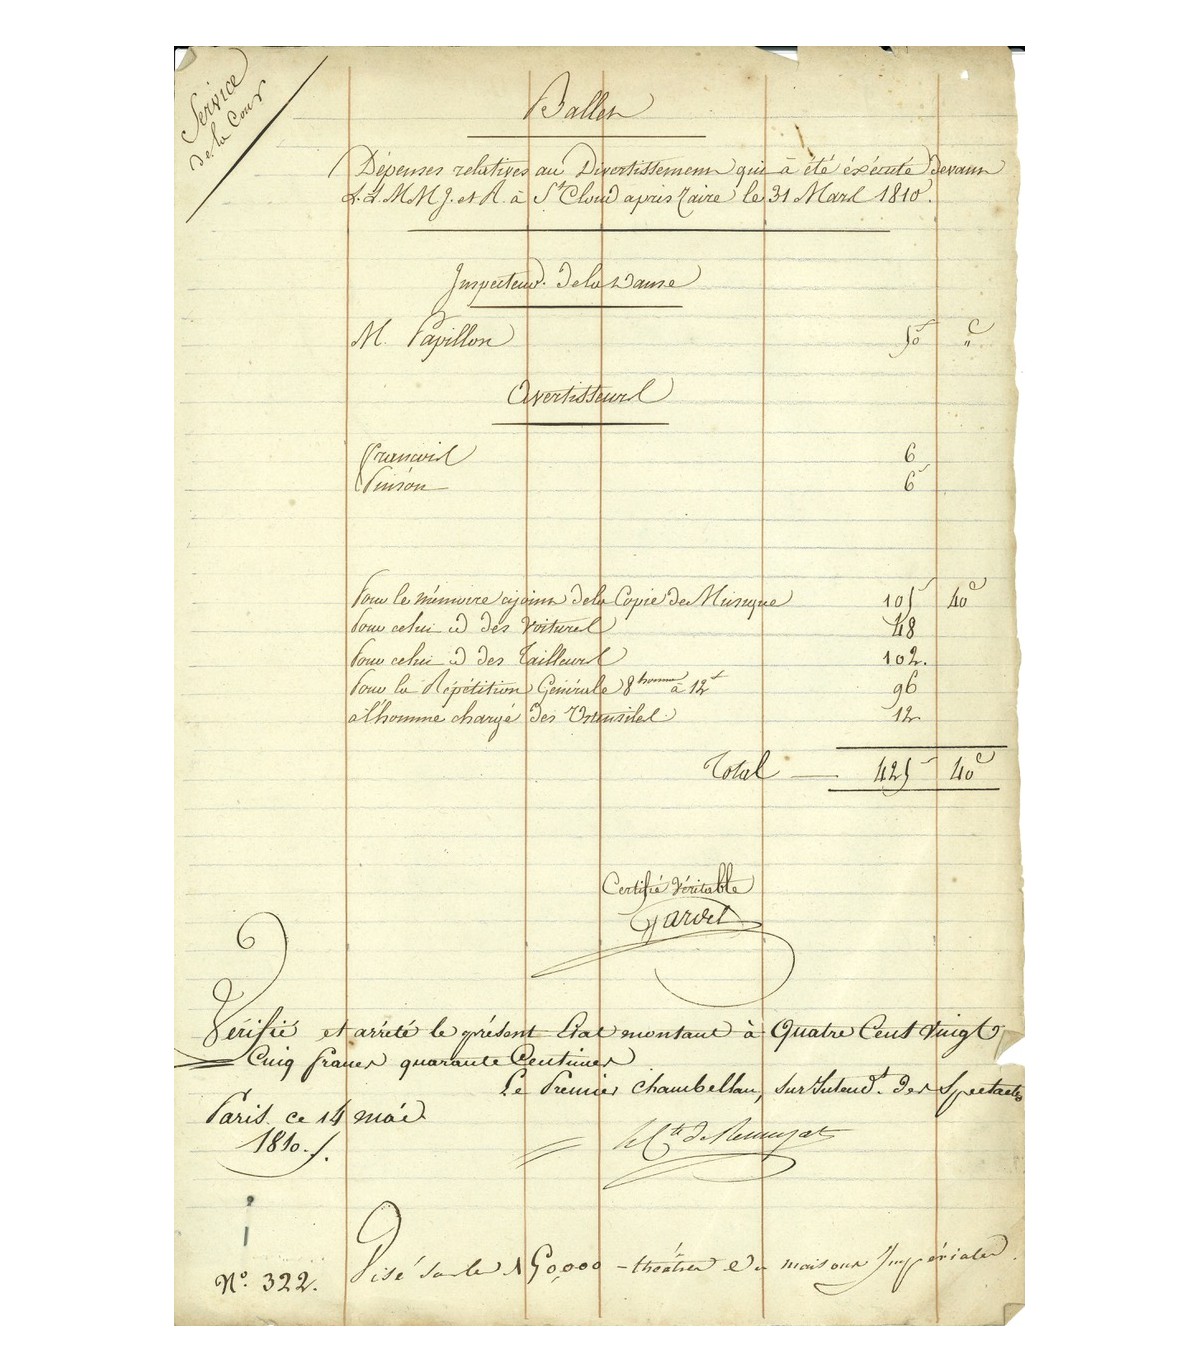 Service
de la Cour
Ballet
Dépenses relatives au Divertissement qui à été éxécuté devant
L.L. M M J. et R. à St Cloud après Zaire le 31 Mars 1810.
Inspecteur de la Danse
M. Papillon 50f c "
Avertisseurs
François 6
Pinson 6
Pour le mémoire cijoint de la Copie de Musique 105 40c
Pour celui id des Voitures 48
Pour celui id des Tailleurs 102.
Pour la Répétition Générale 8 hommes à 12f 96
à l'homme chargé des Ustensiles 12
Total — 425 40c
Certifié Véritable
Gardel
Vérifié et arrété le présent Etat montant à Quatre Cent Vingt
Cinq francs quarante Centimes
Le Premier Chambellan, Surintendt. des Spectacles
Paris ce 14 mai
1810.
le Cte de Remusat
N°. 322. Visé sur les 150,000 - théâtres des maisons Impériales.